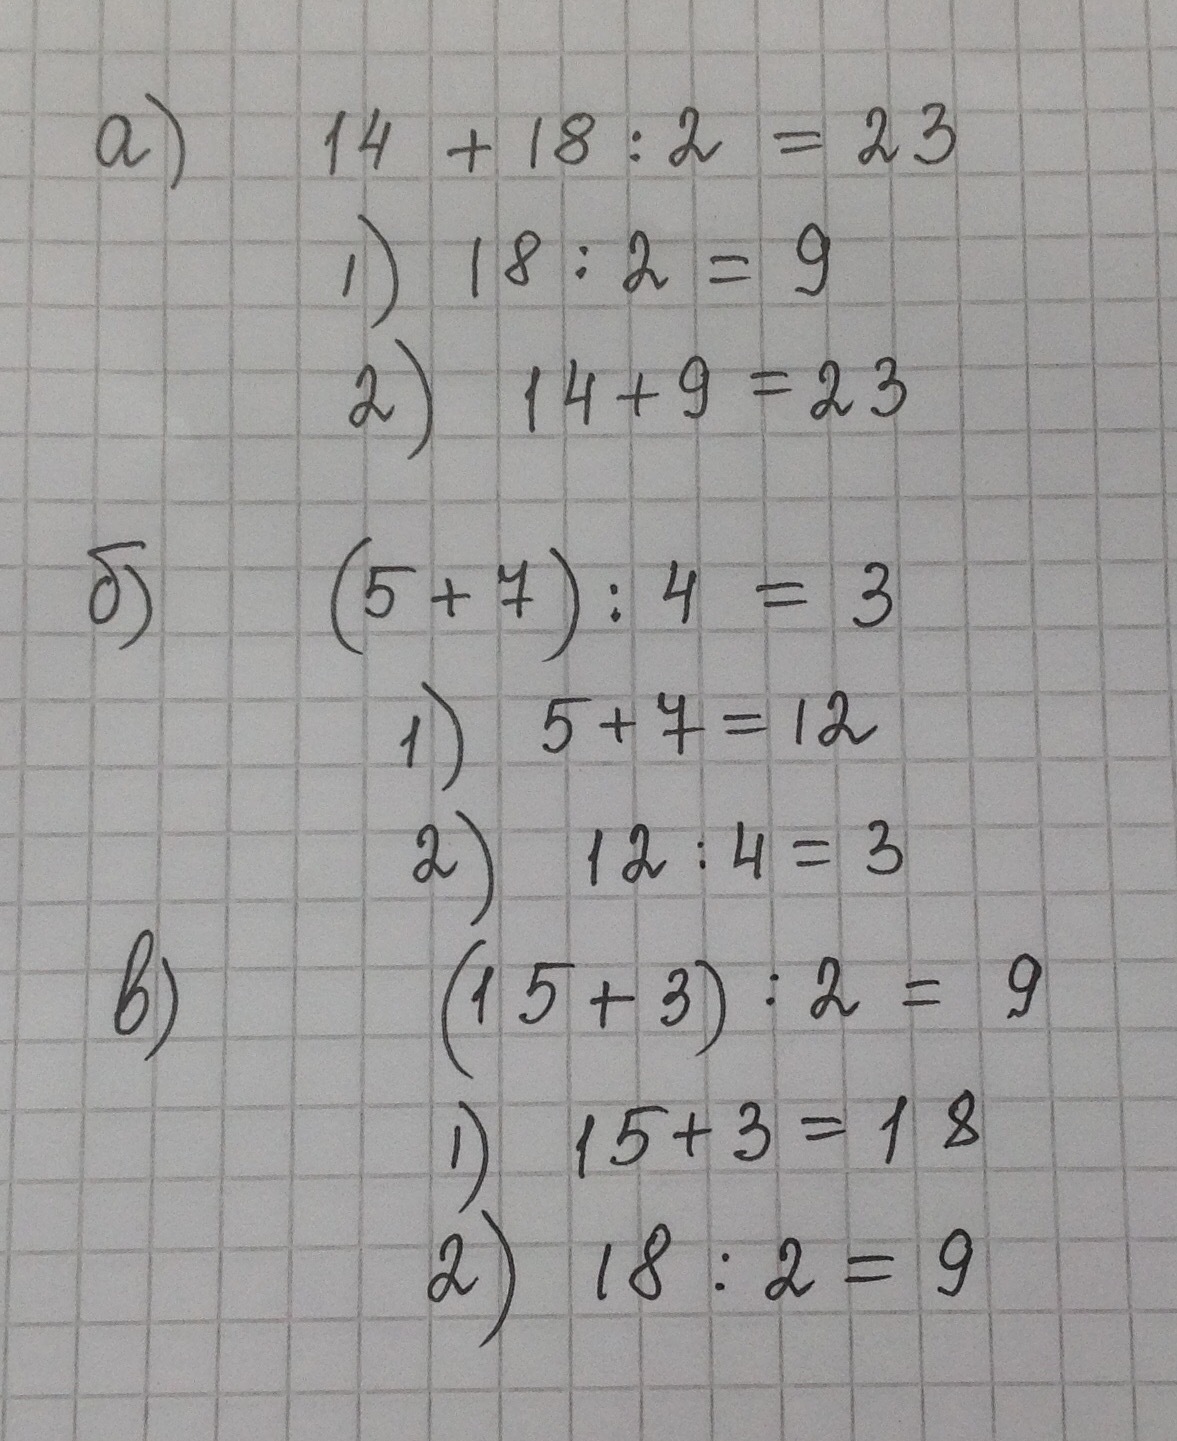 а) 14 + 18 : 2 = 23
1) 18 : 2 = 9
2) 14 + 9 = 23
б) (5 + 7) : 4 = 3
1) 5 + 7 = 12
2) 12 : 4 = 3
в) (15 + 3) : 2 = 9
1) 15 + 3 = 18
2) 18 : 2 = 9